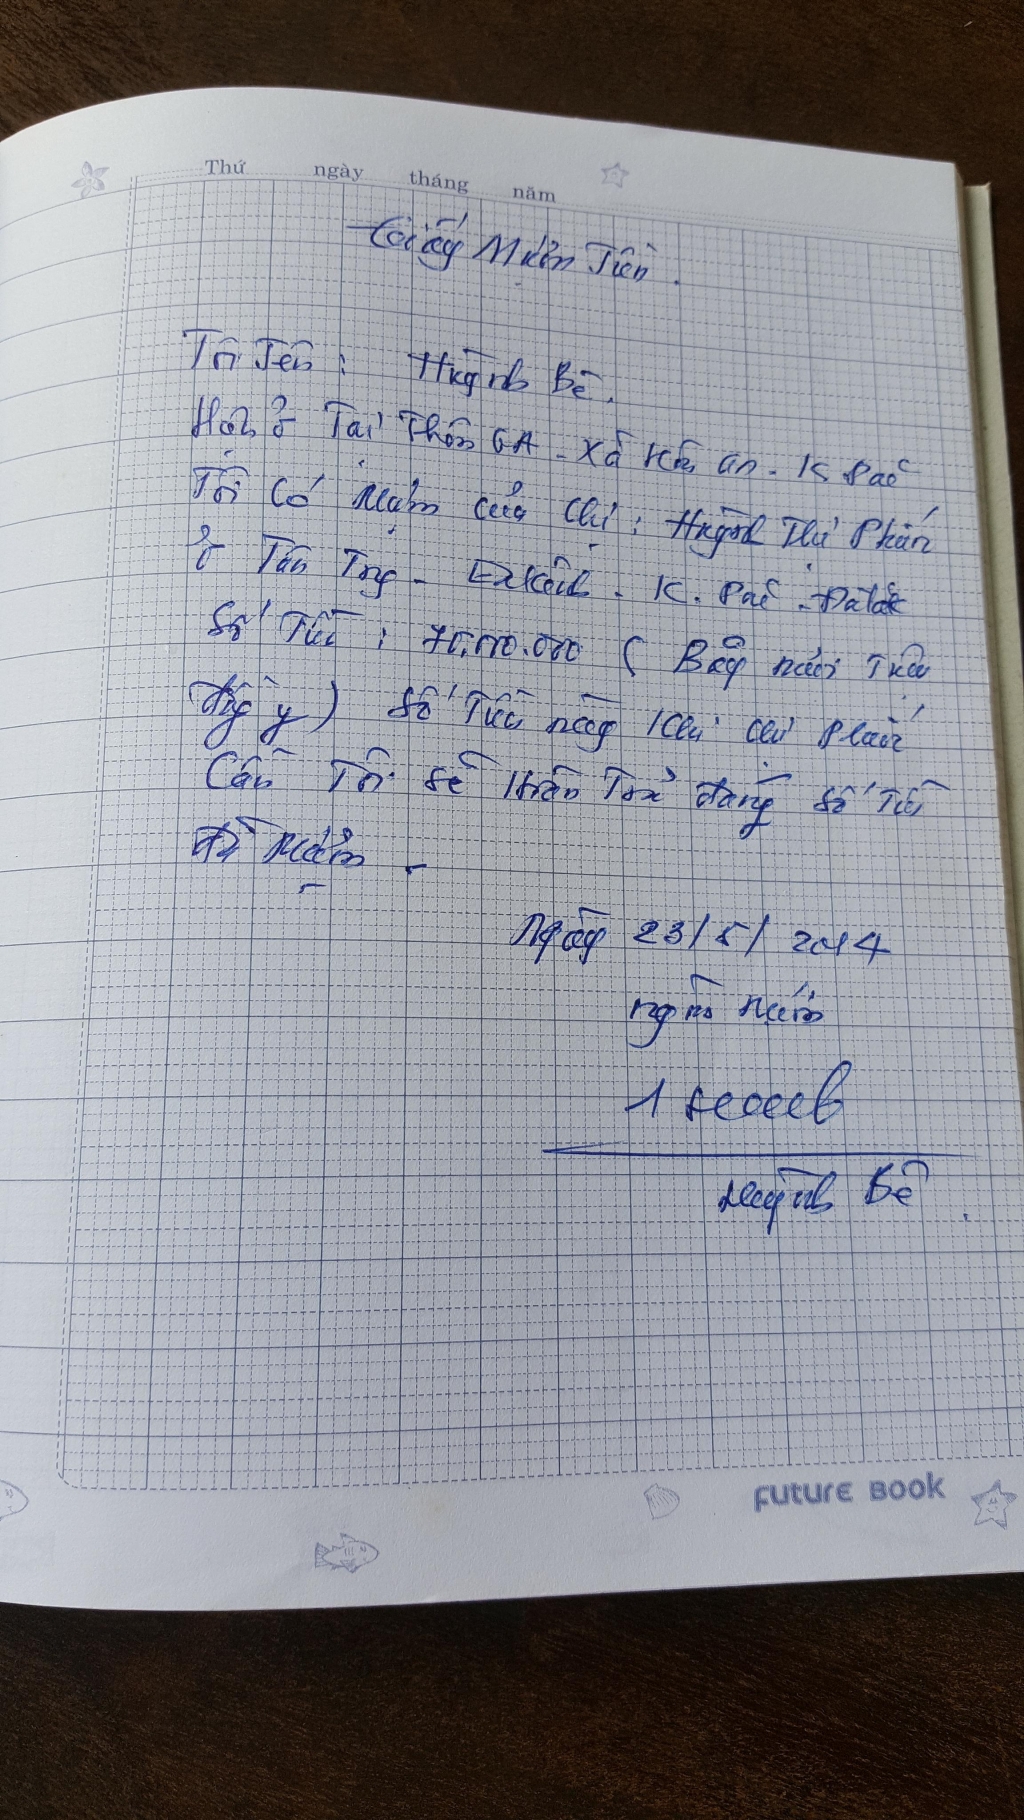 Thứ ngày tháng năm
Giấy Mượn Tiền.
Tôi Tên: Huỳnh Bê.
Hiện ở Tại Thôn 6A - Xã Hòa An - K Pắc
Tôi Có Mượn của Chị: Huỳnh Thị Phấn
ở Tân - K. Pắc - Đắk Lắk
Số Tiền: 70.000.000 (Bảy mươi Triệu
đồng y) Số Tiền này Khi chị Phấn
Cần Tôi sẽ Hoàn Trả đúng số Tiền
đã Mượn.
Ngày 23/5/2014
người mượn
Huỳnh Bê
FUTURE BOOK